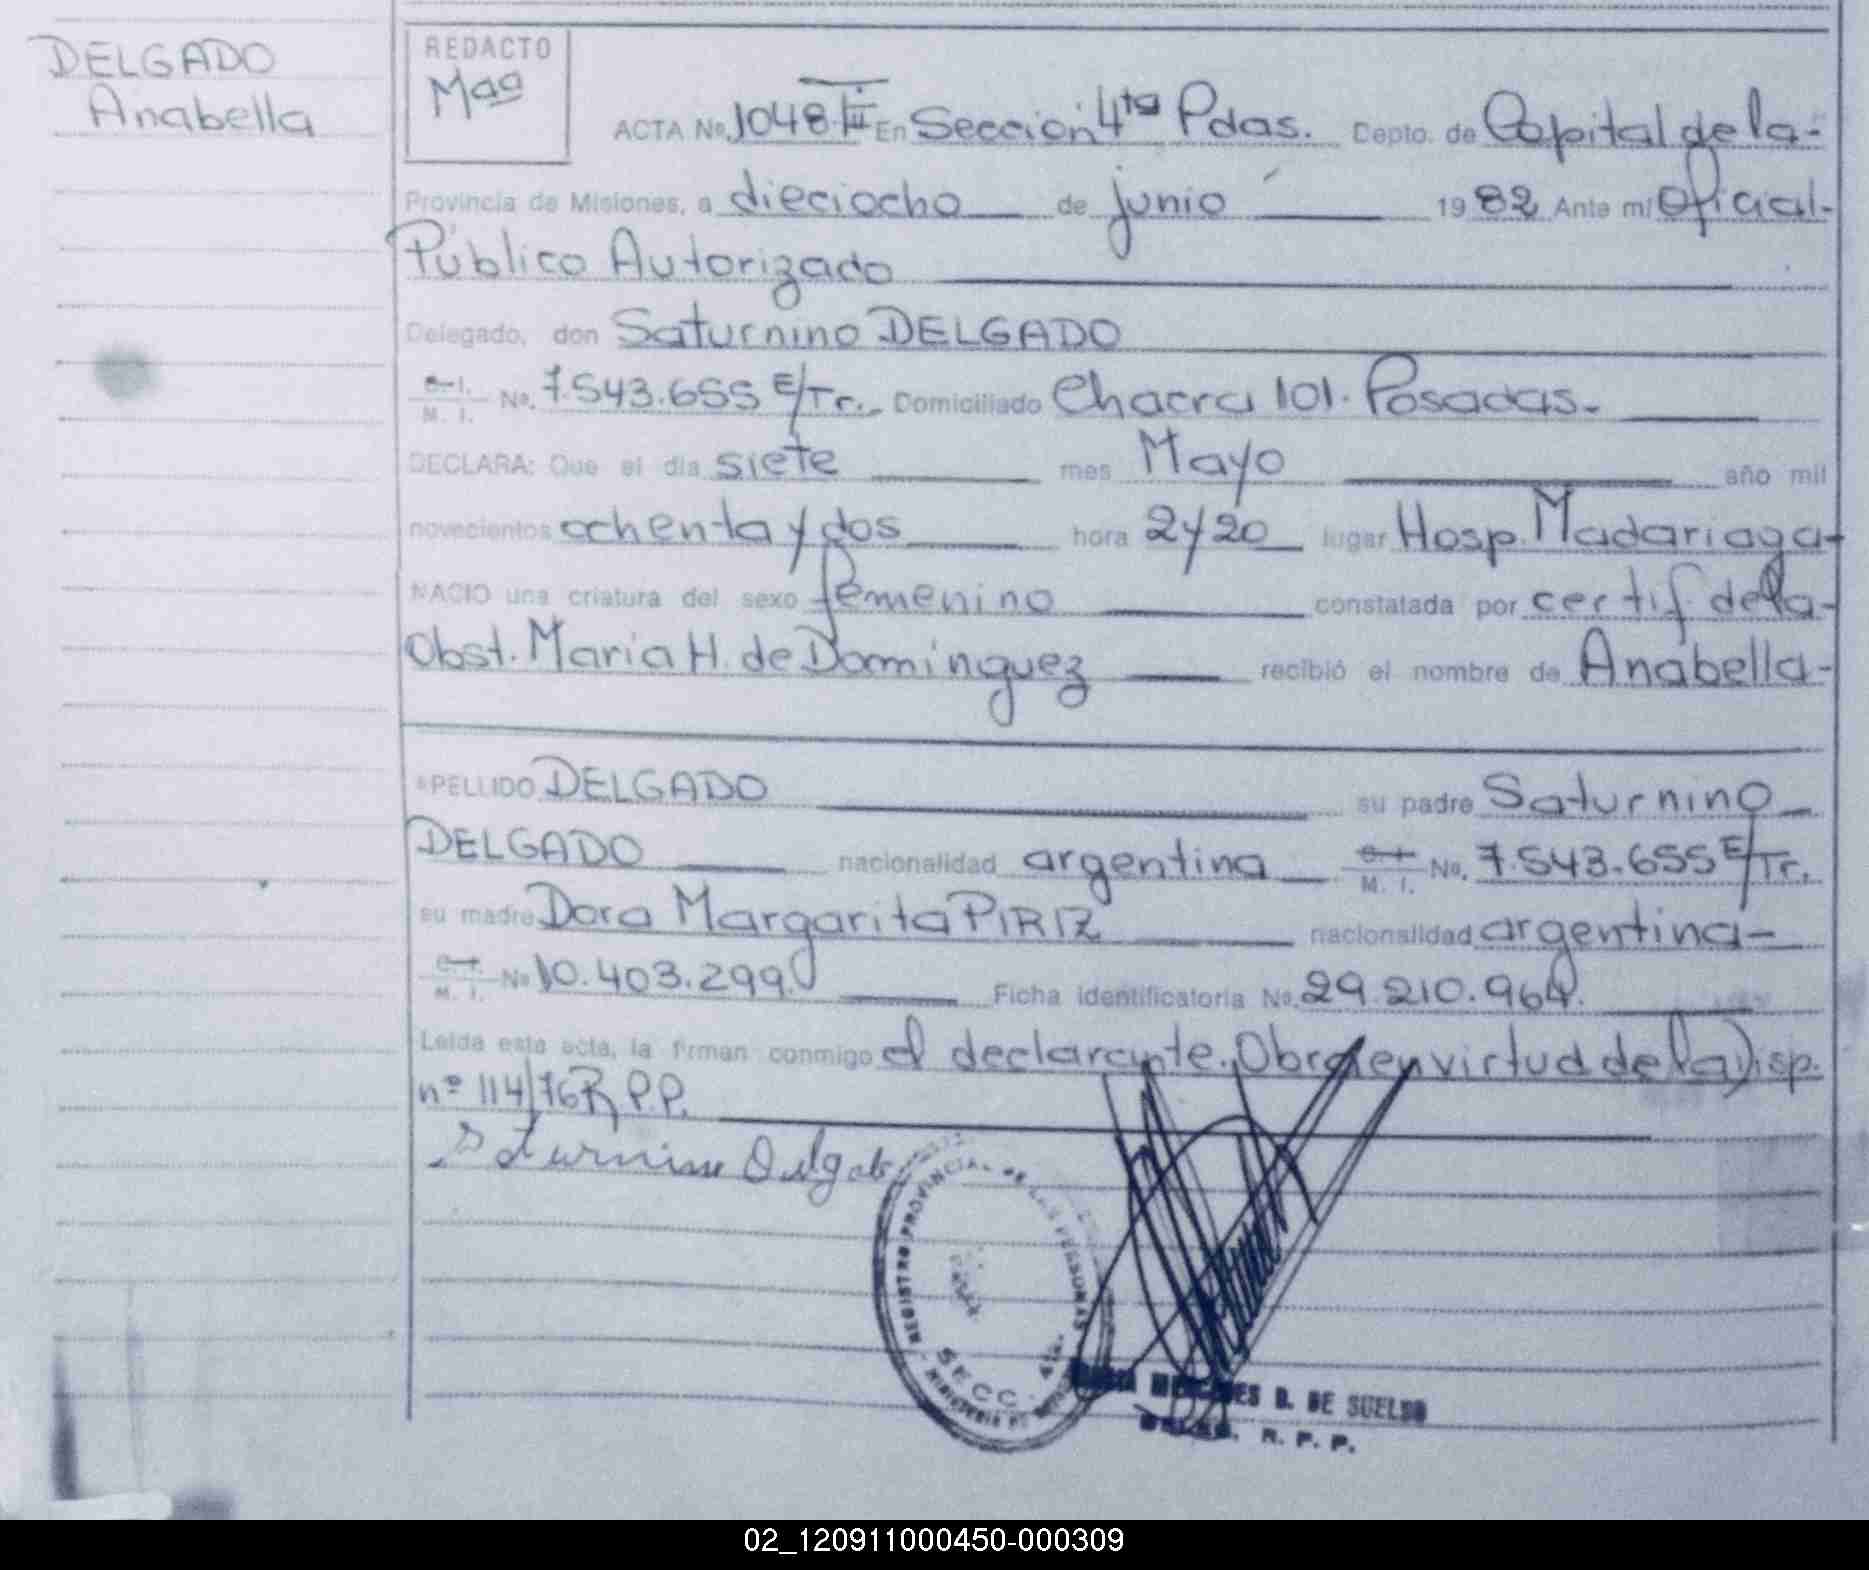 DELGADO
Anabella
REDACTO
Maq
ACTA No. 1048 III En Sección 4ta Pdas. Depto. de Capital de la-
Provincia de Misiones, a dieciocho de junio 1982 Ante mi Oficial-
Público Autorizado
Delegado, don Saturnino DELGADO
M. I. No. 7.543.655 E/Tr. Domiciliado Chacra 101. Posadas.
DECLARA: Que el día siete mes Mayo año mil
novecientos ochenta y dos hora 2 y 20 lugar Hosp. Madariaga-
NACIO una criatura del sexo femenino constatada por certif. de la-
Obst. Maria H. de Dominguez recibió el nombre de Anabella-
APELLIDO DELGADO su padre Saturnino
DELGADO nacionalidad argentina M. I. No. 7.543.655 E/Tr.
su madre Dora Margarita PIRIZ nacionalidad argentina-
M. I. No 10.403.299 Ficha identificatoria No. 29.210.964.
Leida esta acta, la firman conmigo el declarante. Obra en virtud de la Disp.
nº 114/76 R.P.P.
Saturnino Delgado
REGISTRO PROVINCIAL DE LAS PERSONAS
SECC. 4ta.
MINISTERIO DE
MERCEDES B. DE SUELDO
R. P. P.
02_120911000450-000309